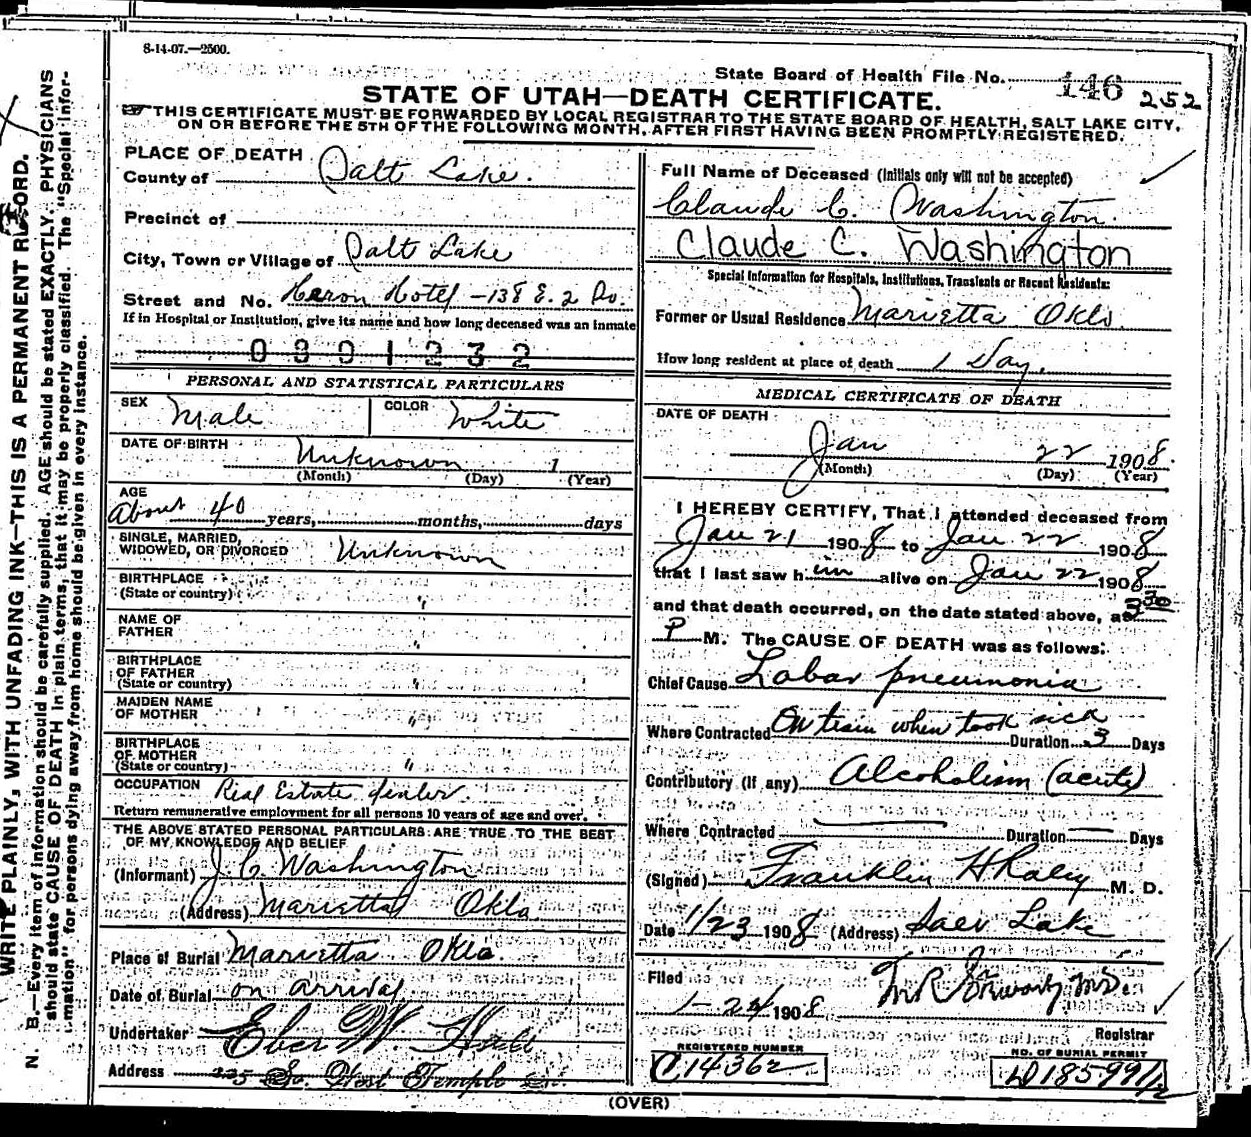 S-14-07.—2500.
State Board of Health File No. 146 252
STATE OF UTAH—DEATH CERTIFICATE.
THIS CERTIFICATE MUST BE FORWARDED BY LOCAL REGISTRAR TO THE STATE BOARD OF HEALTH, SALT LAKE CITY,
ON OR BEFORE THE 5TH OF THE FOLLOWING MONTH, AFTER FIRST HAVING BEEN PROMPTLY REGISTERED.
WRITE PLAINLY, WITH UNFADING INK—THIS IS A PERMANENT RECORD.
N. B.—Every item of information should be carefully supplied. AGE should be stated EXACTLY. PHYSICIANS
should state CAUSE OF DEATH in plain terms, that it may be properly classified. The "Special Infor-
mation" for persons dying away from home should be given in every instance.
PLACE OF DEATH
County of Salt Lake.
Precinct of
City, Town or Village of Salt Lake
Street and No. Hotel - 138 E. 2 So.
If in Hospital or Institution, give its name and how long deceased was an inmate
0801232
PERSONAL AND STATISTICAL PARTICULARS
SEX Male COLOR White
DATE OF BIRTH Unknown 1
(Month) (Day) (Year)
AGE
About 40 years, months, days
SINGLE, MARRIED,
WIDOWED, OR DIVORCED Unknown
BIRTHPLACE
(State or country) "
NAME OF
FATHER "
BIRTHPLACE
OF FATHER
(State or country) "
MAIDEN NAME
OF MOTHER "
BIRTHPLACE
OF MOTHER
(State or country) "
OCCUPATION Real Estate dealer.
Return remunerative employment for all persons 10 years of age and over.
THE ABOVE STATED PERSONAL PARTICULARS ARE TRUE TO THE BEST
OF MY KNOWLEDGE AND BELIEF
(Informant) J. C. Washington
(Address) Marietta Okla
Place of Burial Marietta Okla.
Date of Burial on arrival
Undertaker Eber W. Hall
Address 225 So. West Temple St.
Full Name of Deceased (Initials only will not be accepted)
Claude C. Washington.
Claude C. Washington
Special Information for Hospitals, Institutions, Transients or Recent Residents:
Former or Usual Residence Marietta Okla.
How long resident at place of death 1 Day.
MEDICAL CERTIFICATE OF DEATH
DATE OF DEATH
Jan 22 1908.
(Month) (Day) (Year)
I HEREBY CERTIFY, That I attended deceased from
Jan 21 1908 to Jan 22 1908
that I last saw him alive on Jan 22 1908
and that death occurred, on the date stated above, at 3 30
P M. The CAUSE OF DEATH was as follows:
Chief Cause Lobar pneumonia
Where Contracted On train when took sick
Duration 3 Days
Contributory (if any) Alcoholism (acute)
Where Contracted Duration Days
(Signed) Franklin H Raley M. D.
Date 1/23 1908 (Address) Salt Lake
Filed
1-24 1908
Registrar
REGISTERED NUMBER
C14362
NO. OF BURIAL PERMIT
D18599 1/2
(OVER)